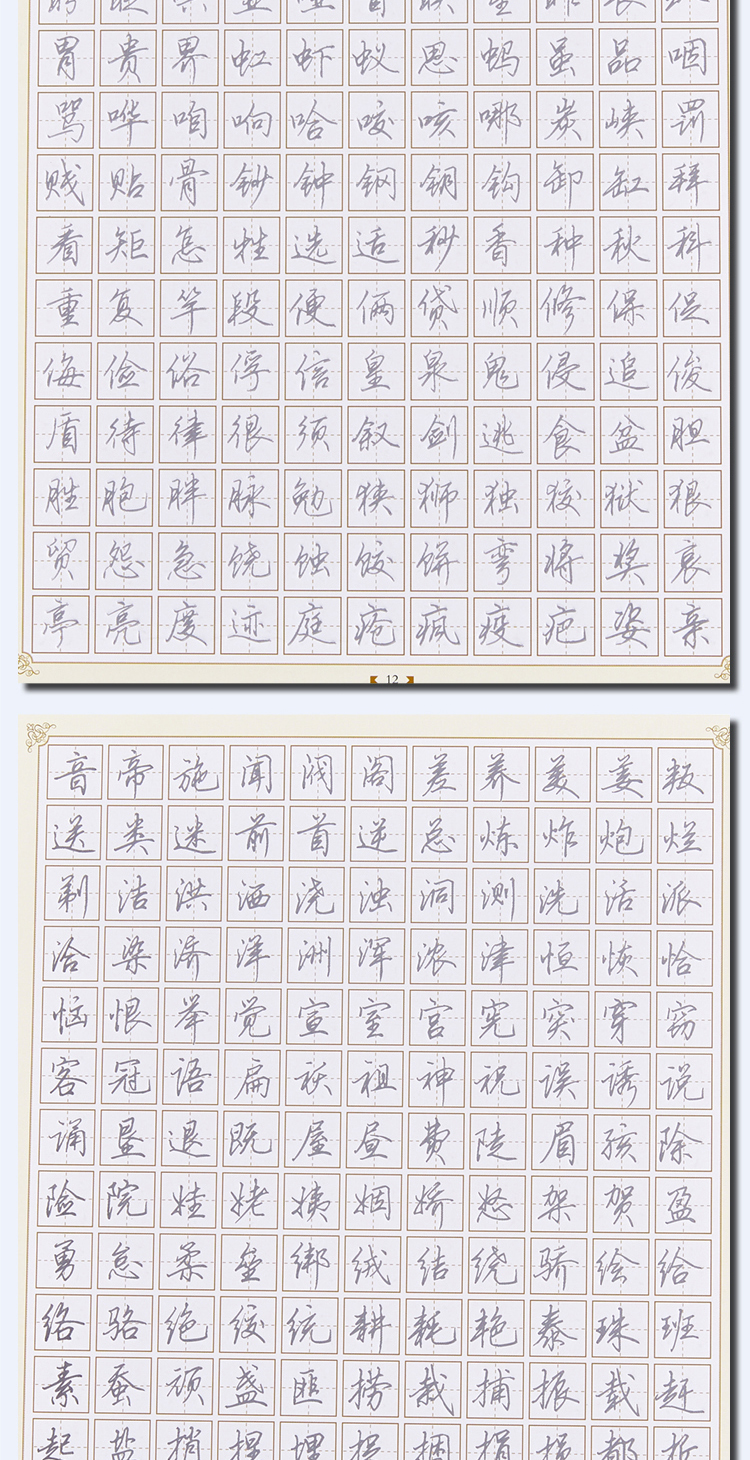 胃贵界虹虾蚁思蚂虽品咽
骂哗咱响哈咬咳哪炭峡罚
贱贴骨钞钟钢钥钩卸缸拜
看矩怎牲选适秒香种秋科
重复竿段便俩贷顺修保促
侮俭俗俘信皇泉鬼侵追俊
盾待律很须叙剑逃食盆胆
胜胞胖脉勉狭狮独狡狱狠
贸怨急饶蚀饺饼弯将奖哀
亭亮度迹庭疮疯疫疤姿亲
12
音帝施闻阀阁差养美姜叛
送类迷前首逆总炼炸炮烂
剃洁洪洒浇浊洞测洗活派
洽染济洋洲浑浓津恒恢恰
恼恨举觉宣室宫宪突穿窃
客冠语扁袄祖神祝误诱说
诵垦退既屋昼费陡眉孩除
险院娃姥姨姻娇怒架贺盈
勇怠柔垒绑绒结绕骄绘给
络骆绝绞统耕耗艳泰珠班
素蚕顽盏匪捞栽捕振载赶
起盐捎捏埋捉捆捐损都折